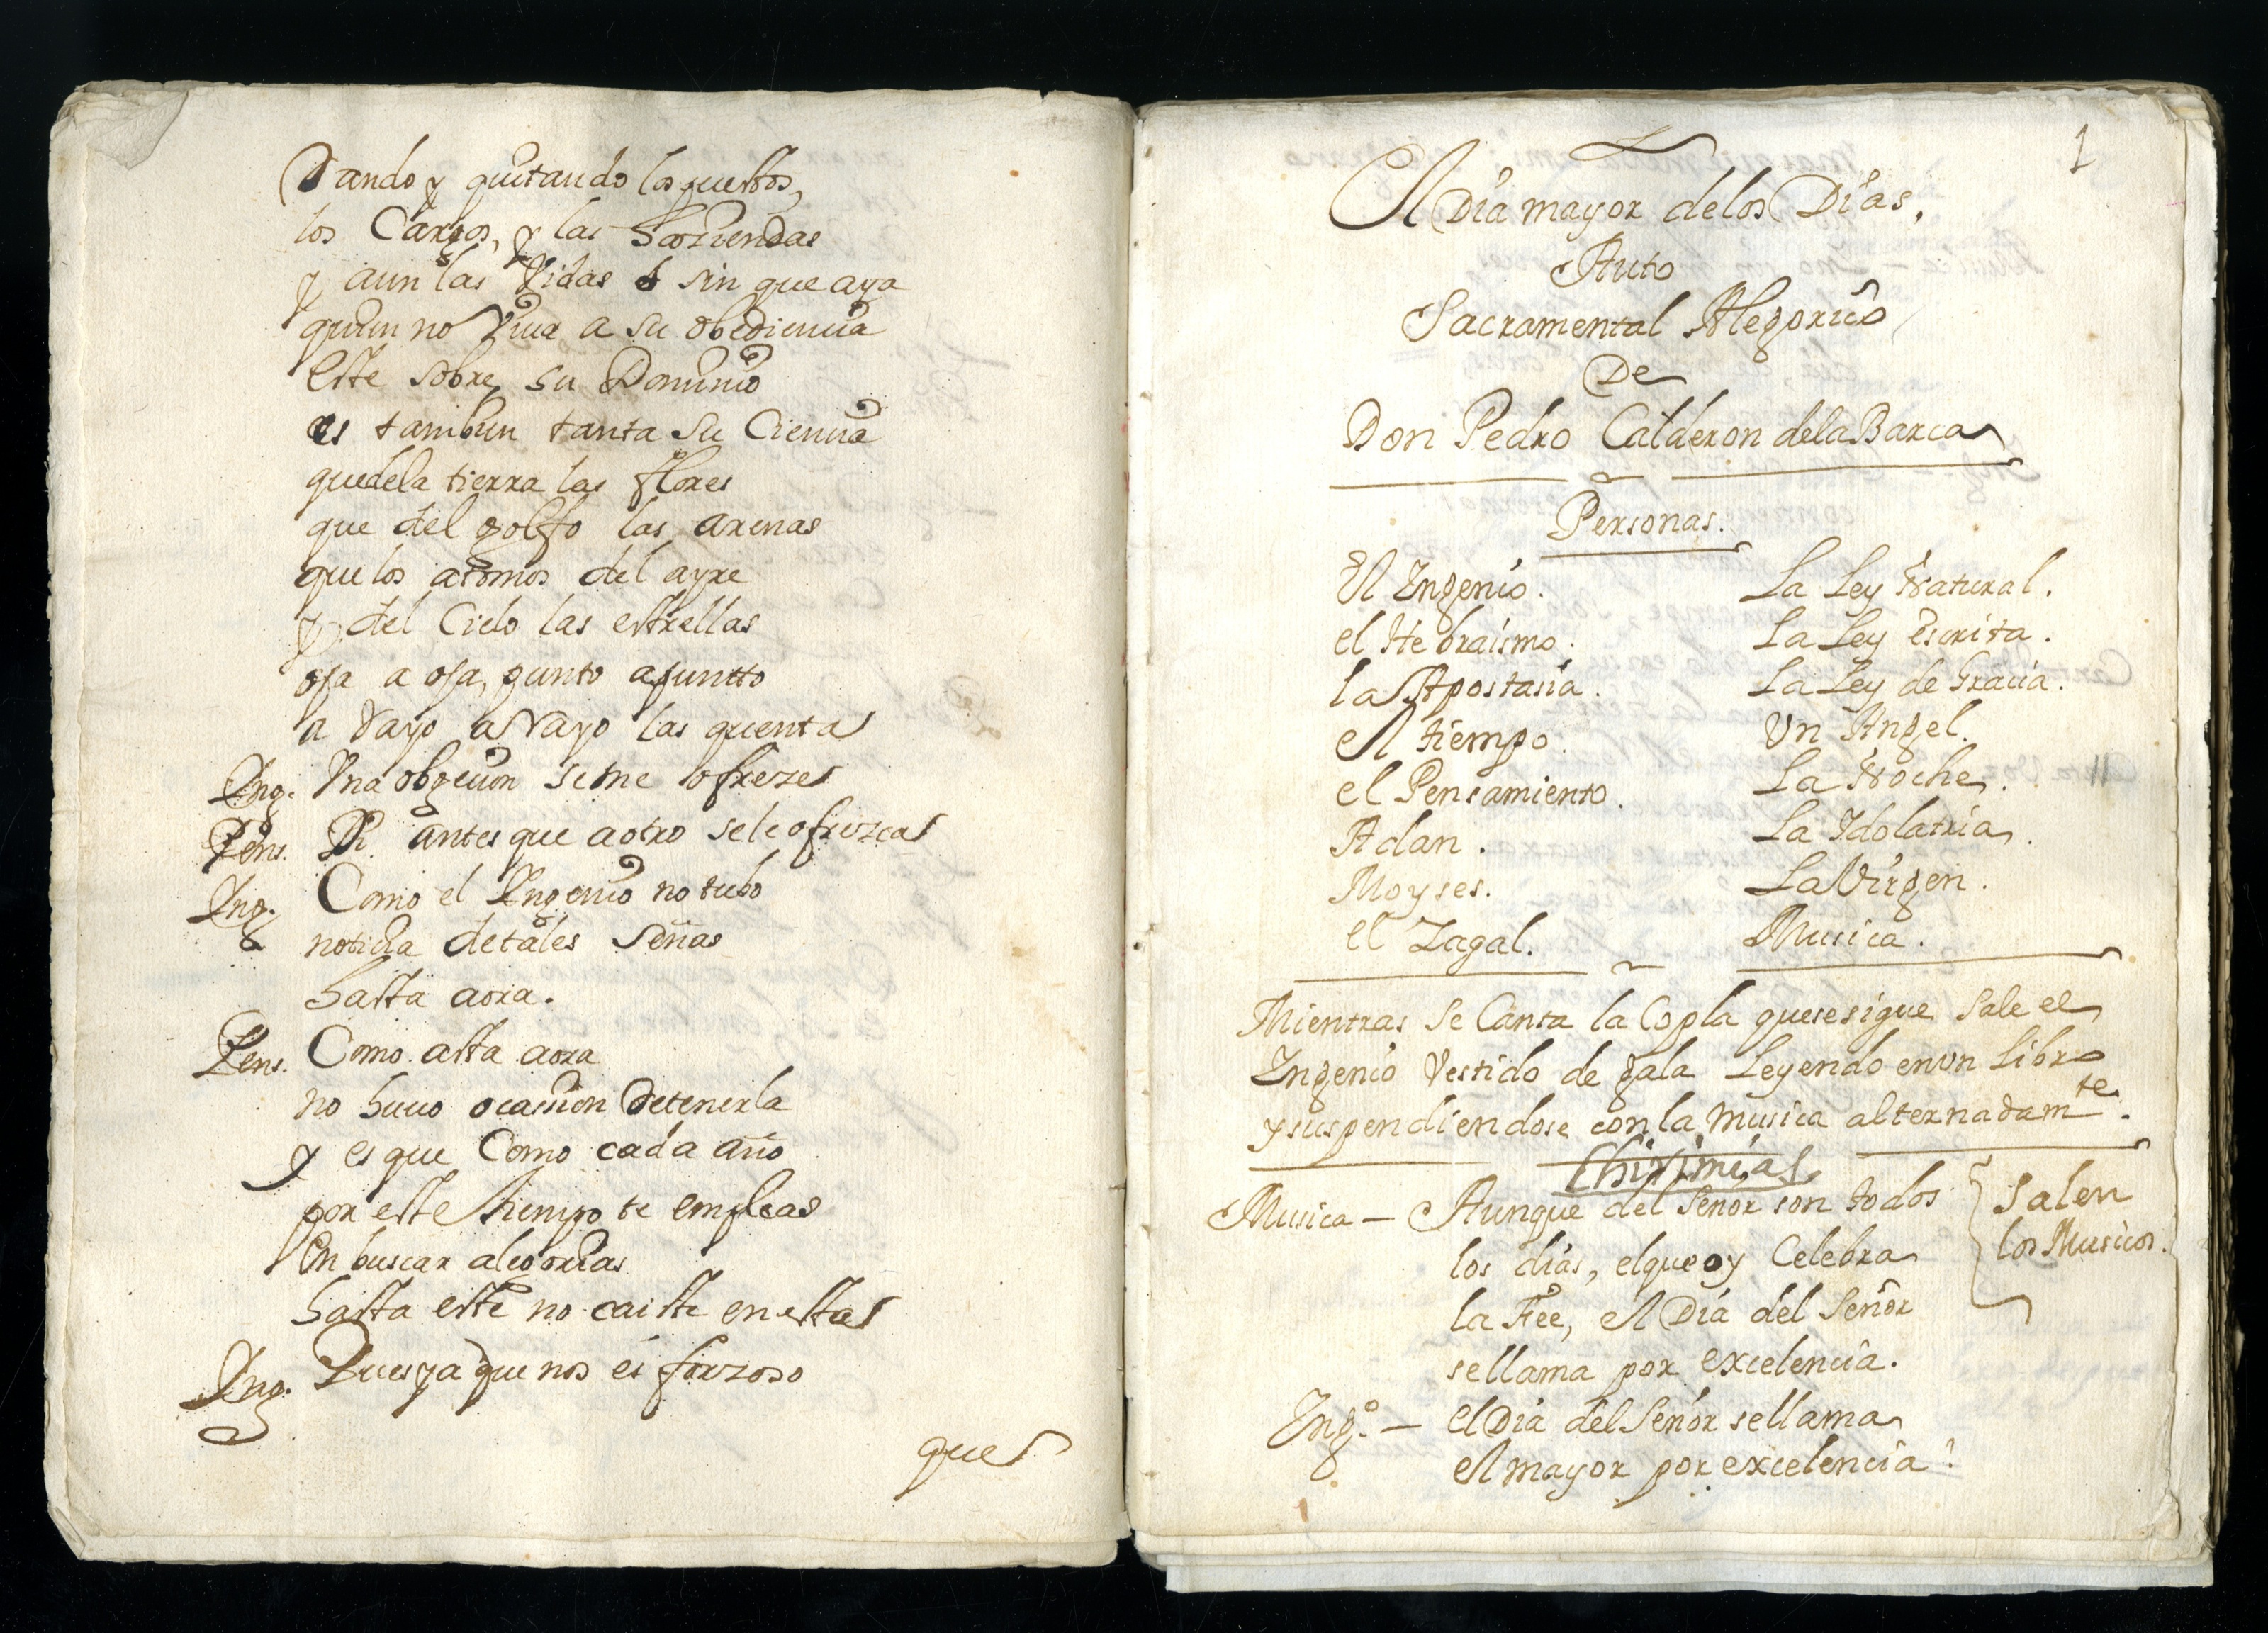 Dando y quitando los puestos,
los Cargos, y las haziendas
y aun las Vidas sin que aya
quien no Viva a su obediencia
Este sobre su Dominio
es tambien tanta su Ciencia
que de la tierra las flores
que del golfo las arenas
que los atomos del ayre
y del Cielo las estrellas
oja a oja, punto a puntto
a rayo a rayo las quenta
Ing. Vna obgecion se me ofreze
Pens. Di antes que a otro se le ofrezca
Ing. Como el Ingenio no tubo
noticia de tales señas
hasta aora.
Pens. Como asta aora
no huuo ocasion de tenerla
y es que Como cada año
por este tiempo te empleas
En buscar alegorias
hasta este no caiste en esta
Ing. Pues ya que nos es forzoso
que
1
El Dia mayor de los Dias,
Auto
Sacramental Alegorico
De
Don Pedro Calderon de la Barca
Personas.
El Ingenio. La Ley Natural.
el Hebraismo. La Ley Escrita.
la Apostasia. La Ley de Gracia.
el tiempo. Un Angel.
el Pensamiento. La Noche.
Adan. La Idolatria.
Moyses. La Virgen.
el Zagal. Musica.
Mientras se Canta la Copla que se sigue sale el
Ingenio Vestido de gala Leyendo en un Libro
y suspendiendose con la musica alternadamte.
Chirimias
Musica — Aunque del Señor son todos Salen
los dias, el que oy Celebra los Musicos.
la Fee, el Dia del Señor
se llama por excelencia.
Ingo. — el Dia del Señor se llama
el mayor por excelencia?